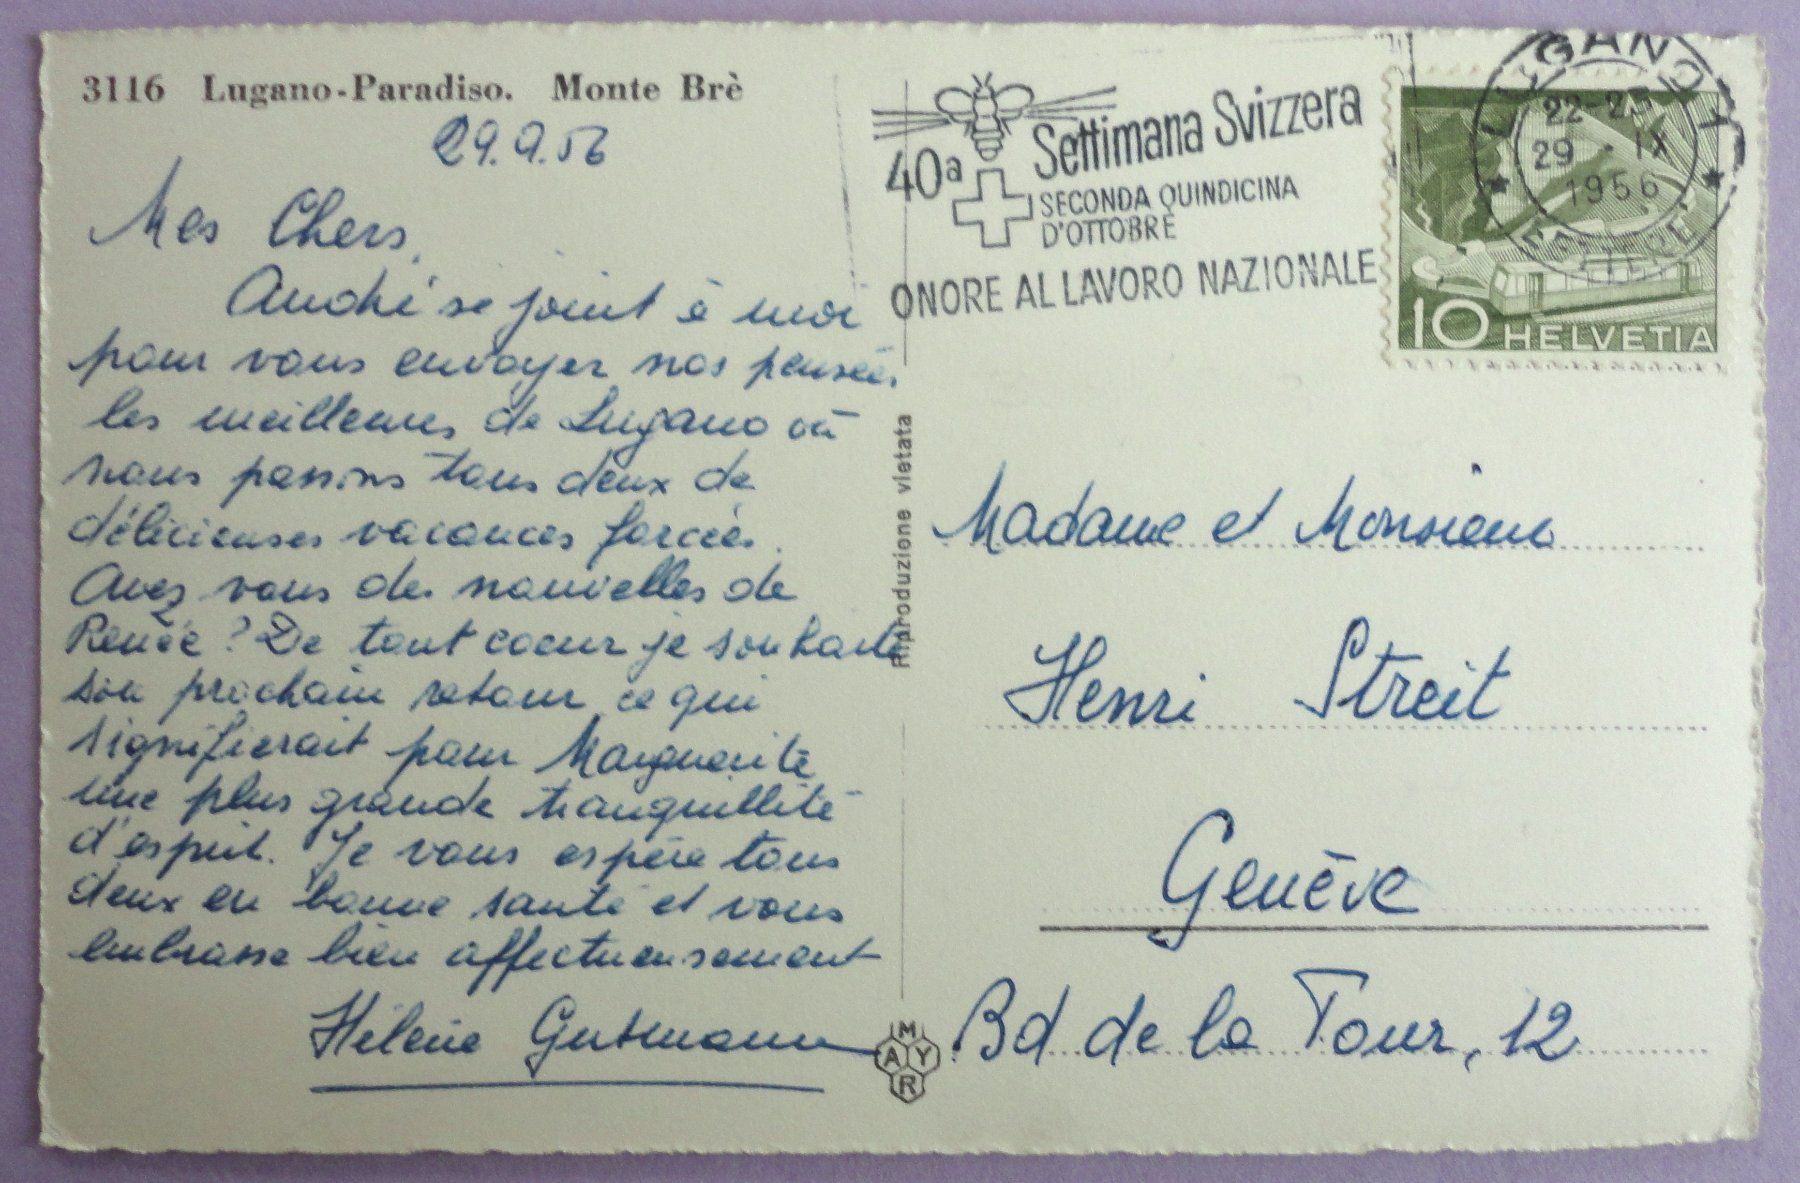 3116 Lugano-Paradiso. Monte Brè
29.9.56
Mes Chers,
André se joint à moi
pour vous envoyer nos pensées
les meilleures de Lugano où
nous passons tous deux de
délicieuses vacances forcées.
Avez vous des nouvelles de
Renée? De tout coeur je souhaite
son prochain retour ce qui
signifierait pour Marguerite
une plus grande tranquillité
d'esprit. Je vous espère tous
deux en bonne santé et vous
embrasse bien affectueusement
Hélène Gutmann
Riproduzione vietata
MAYR
40a Settimana Svizzera
SECONDA QUINDICINA
D'OTTOBRE
ONORE AL LAVORO NAZIONALE
LUGANO 1
22-23
29.IX
1956
LETTERE
10 HELVETIA
Madame et Monsieur
Henri Streit
Genève
Bd de la Tour, 12